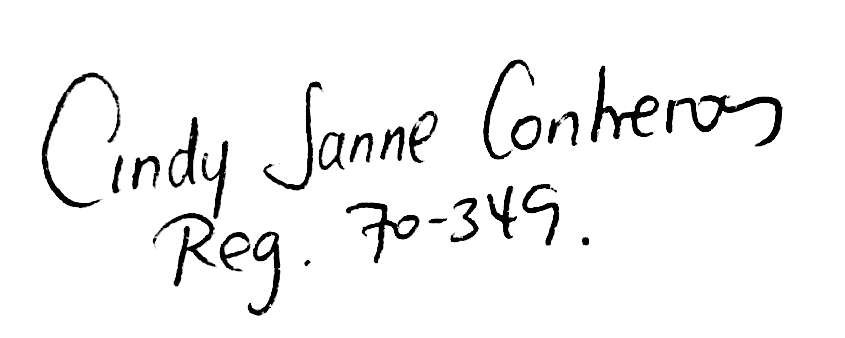 Cindy Janne Contreras
Reg. 70-349.